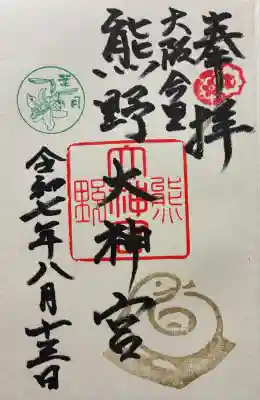 奉拝
大阪今里
熊野大神宮
令和七年八月十三日
葉月
熊野
大神宮